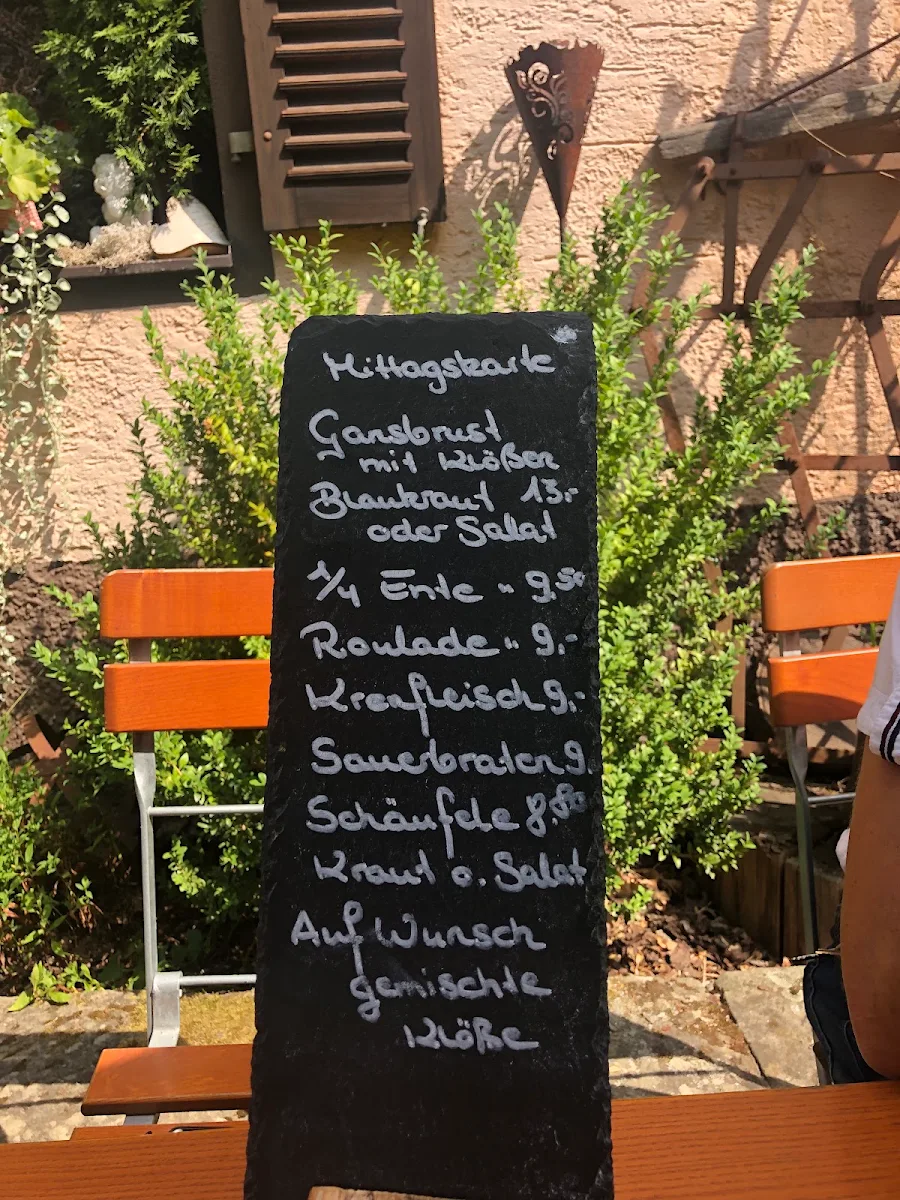 Mittagskarte
Gansbrust
mit Klößen
Blaukraut 13.-
oder Salat
1/4 Ente " 9,50
Roulade " 9.-
Krenfleisch 9.-
Sauerbraten 9
Schäufele 8,50
Kraut o. Salat
Auf Wunsch
gemischte
Klöße